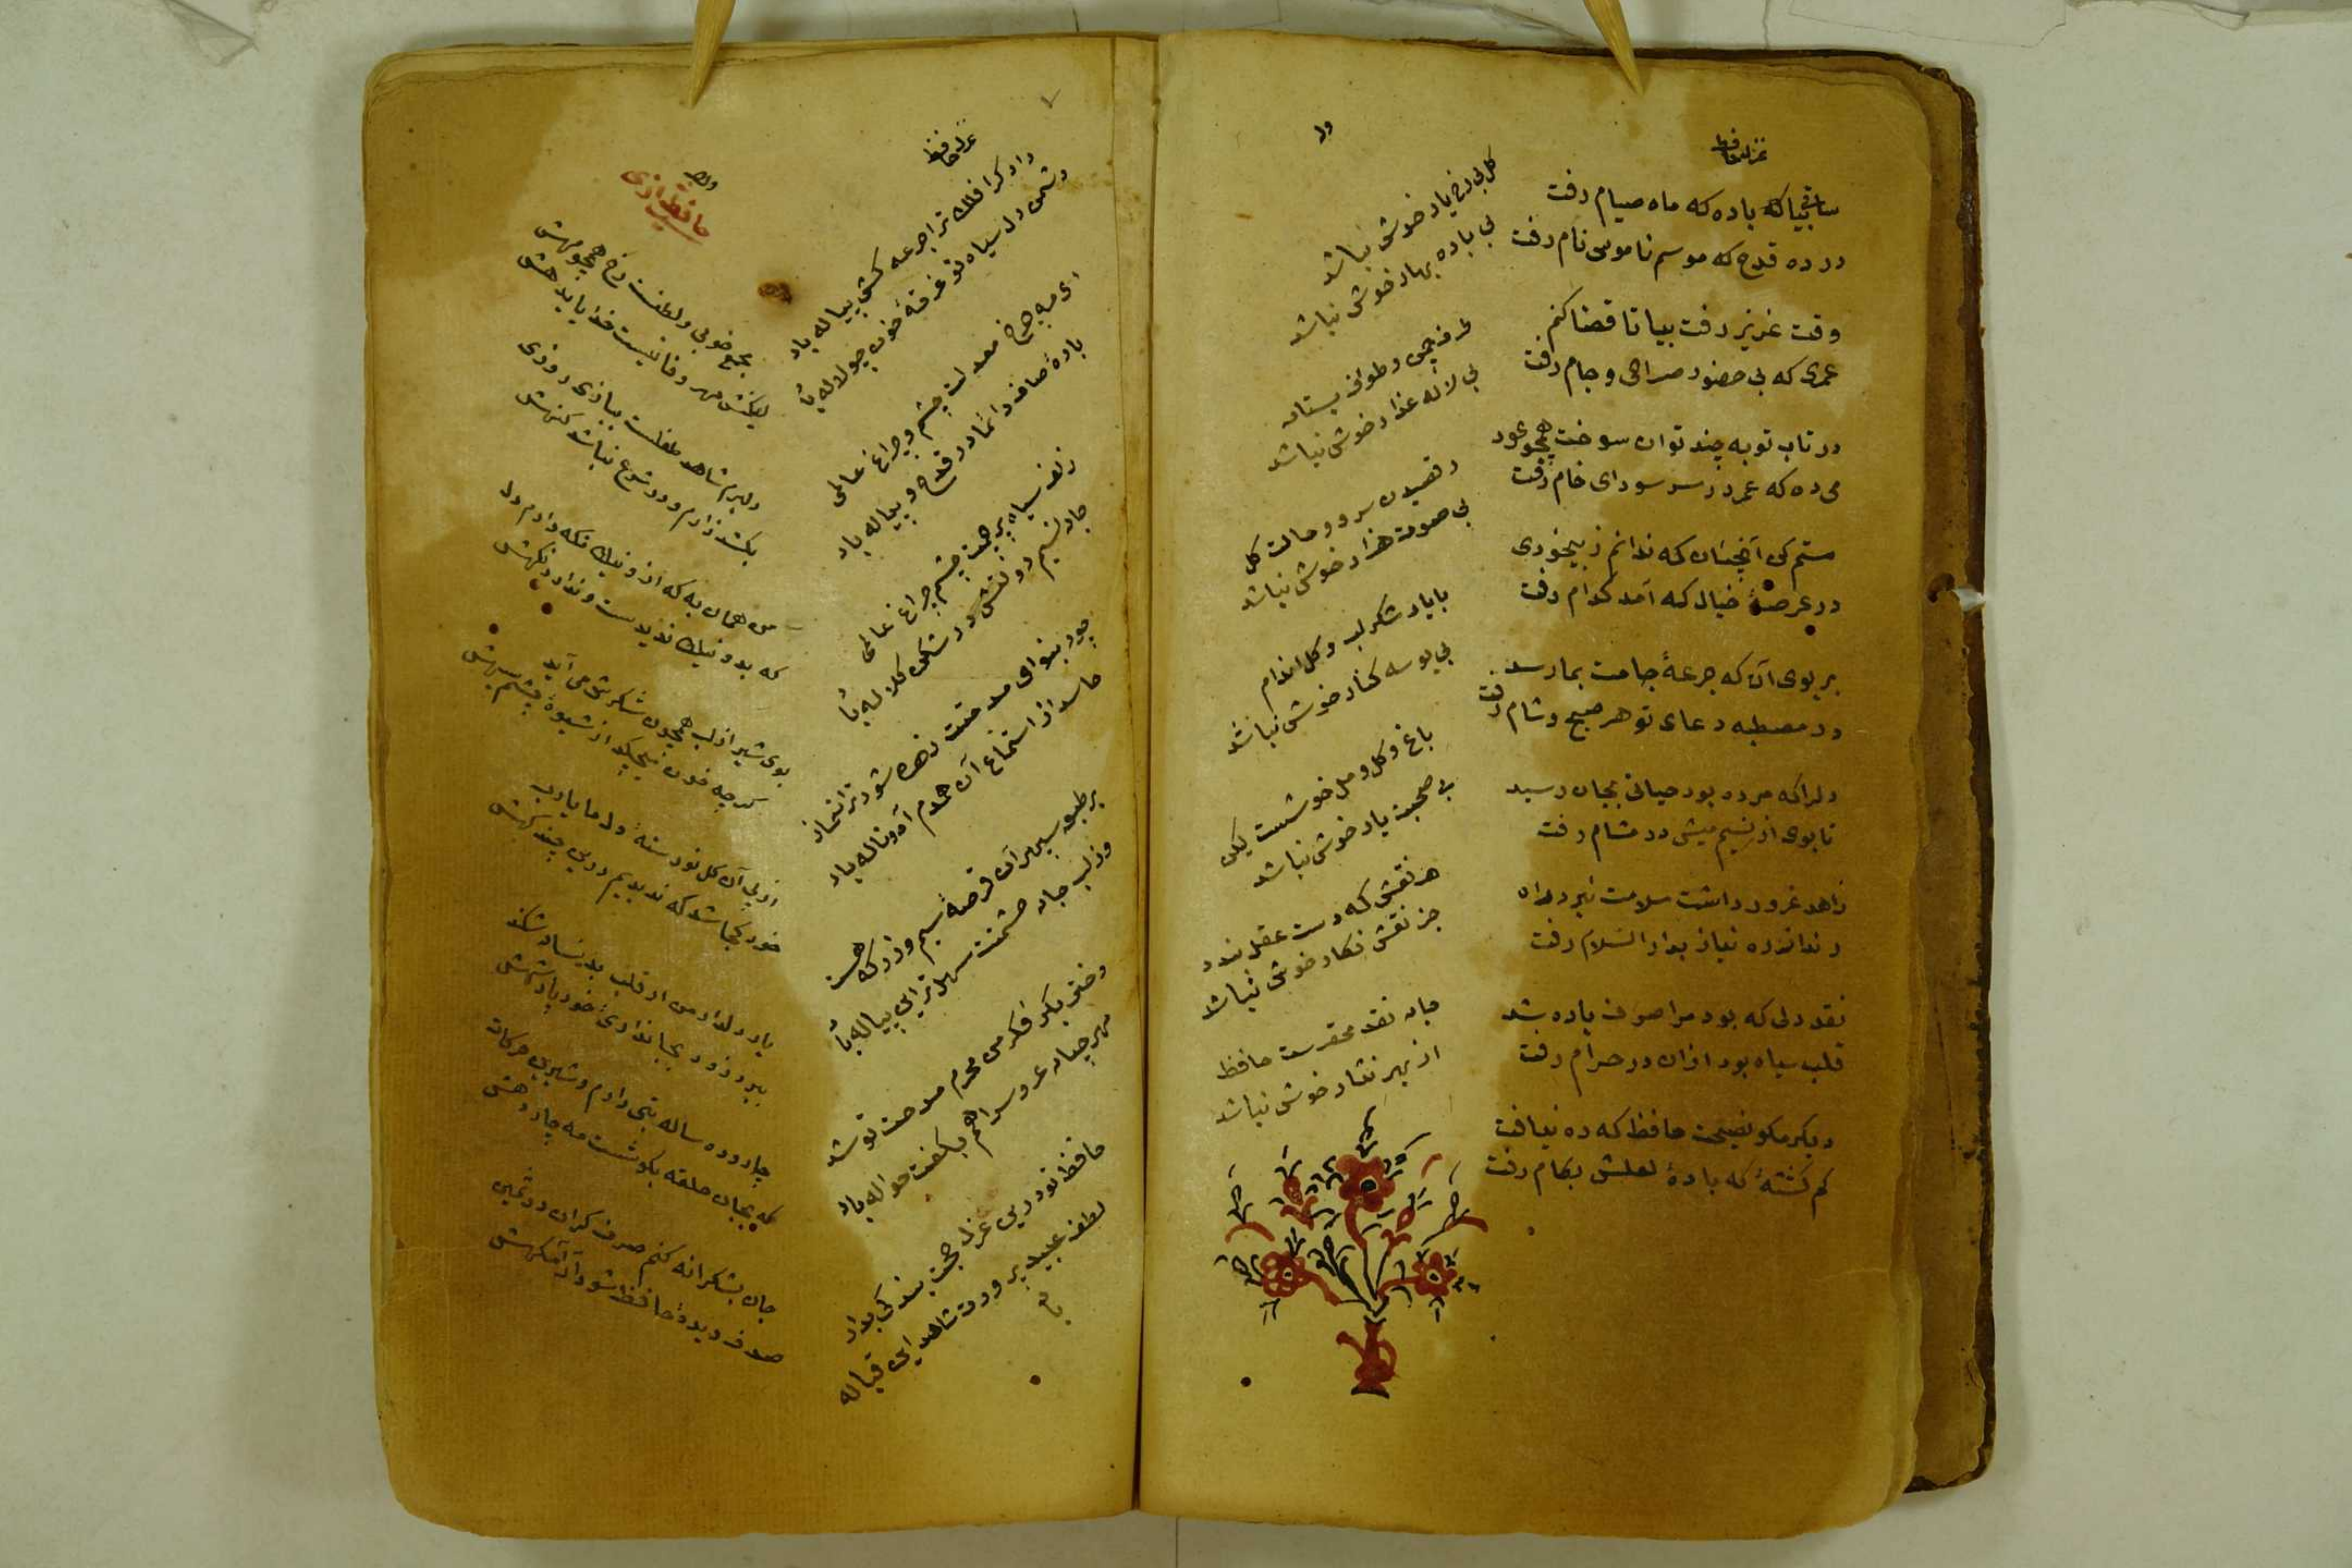 غزل حافظ
ساقی بیا که باده که ماه صیام رفت
در ده قدح که موسم ناموس نام رفت
وقت عزیز رفت بیا تا قضا کنم
عمری که بی حضور صراحی و جام رفت
در تاب توبه چند توان سوخت همچو عود
می ده که عمر در سر سودای خام رفت
مستم کن آنچنان که ندانم ز بیخودی
در عرصهٔ خیال که آمد کدام رفت
بر بوی آن که جرعهٔ جامت بما رسد
در مصطبه دعای تو هر صبح و شام رفت
دل را که مرده بود حیاتی بجان رسید
تا بوی از نسیم میش در مشام رفت
زاهد غرور داشت سلامت نبرد راه
رند از ره نیاز بدار السلام رفت
نقد دلی که بود مرا صرف باده شد
قلب سیاه بود ازان در حرام رفت
دیگر مکو نصیحت حافظ که ره نیافت
کم کشتهٔ که بادهٔ لعلش بکام رفت
وله
کل بی رخ یار خوش نباشد
بی باده بهار خوش نباشد
طرف چمن و طواف بستان
بی لاله عذار خوش نباشد
رقصیدن سرو و حالت کل
بی صوت هزار خوش نباشد
با یار شکر لب و کل اندام
بی بوسه کنار خوش نباشد
باغ و کل و مل خوشست لیکن
بی صحبت یار خوش نباشد
هر نقش که دست عقل بندد
جز نقش نکار خوش نباشد
جان نقد محقرست حافظ
از بهر نثار خوش نباشد
غزل حافظ
داد کرا فلک ترا جرعه کش پیاله باد
دشمن دل سیاه تو غرقهٔ خون چو لاله با
ای مه چرخ معدلت چشم و چراغ عالمی
بادهٔ صاف دائما در قدح و پیاله باد
زلف سیاه پرچمت چشم چراغ عالمی
جان نسیم دولتش در شکن کلاله با
چون بنوای مدحتت زهره شود ترانه ساز
حاسد از استماع آن همدم آه و ناله باد
بر طبق سپهر آن قرصهٔ سیم و زر که هست
وز لب جان حشمتت سهل ترین پیاله با
دختر بکر فکر من محرم مدحت تو شد
مهر چنان عروس را هم بکفت حواله باد
حافظ تو درین غزل حجت بندکی بداد
لطف عبید پرورت شاهد این قباله
باد
وله
حافظ شیرازی
مجمع خوبی و لطفست رخ همچو مهش
لیکنش مهر و وفا نیست خدایا بدهش
دلبرم شاهد طفلست ببازی روزی
بکشد زارم و در شرع نباشد کنهش
من همان به که ازو نیک نکه دارم دل
که بد و نیک ندیدست و ندارد نکهش
بوی شیر از لب همچون شکرش می آید
کرچه خون میچکد از شیوهٔ چشم سیهش
از پی آن کل نورستهٔ دل ما یارب
خود کجا شد که ندیدیم درین چند کهش
یار دلدار من ار قلب بدینسان شکند
ببرد زود بجانداری خود پادشهش
چارده ساله بتی دارم و شیرین حرکات
که بجان حلقه بکوشست مه چاردهش
جان بشکرانه کنم صرف کر آن در ثمین
صدف دیدهٔ حافظ شود آرامکهش